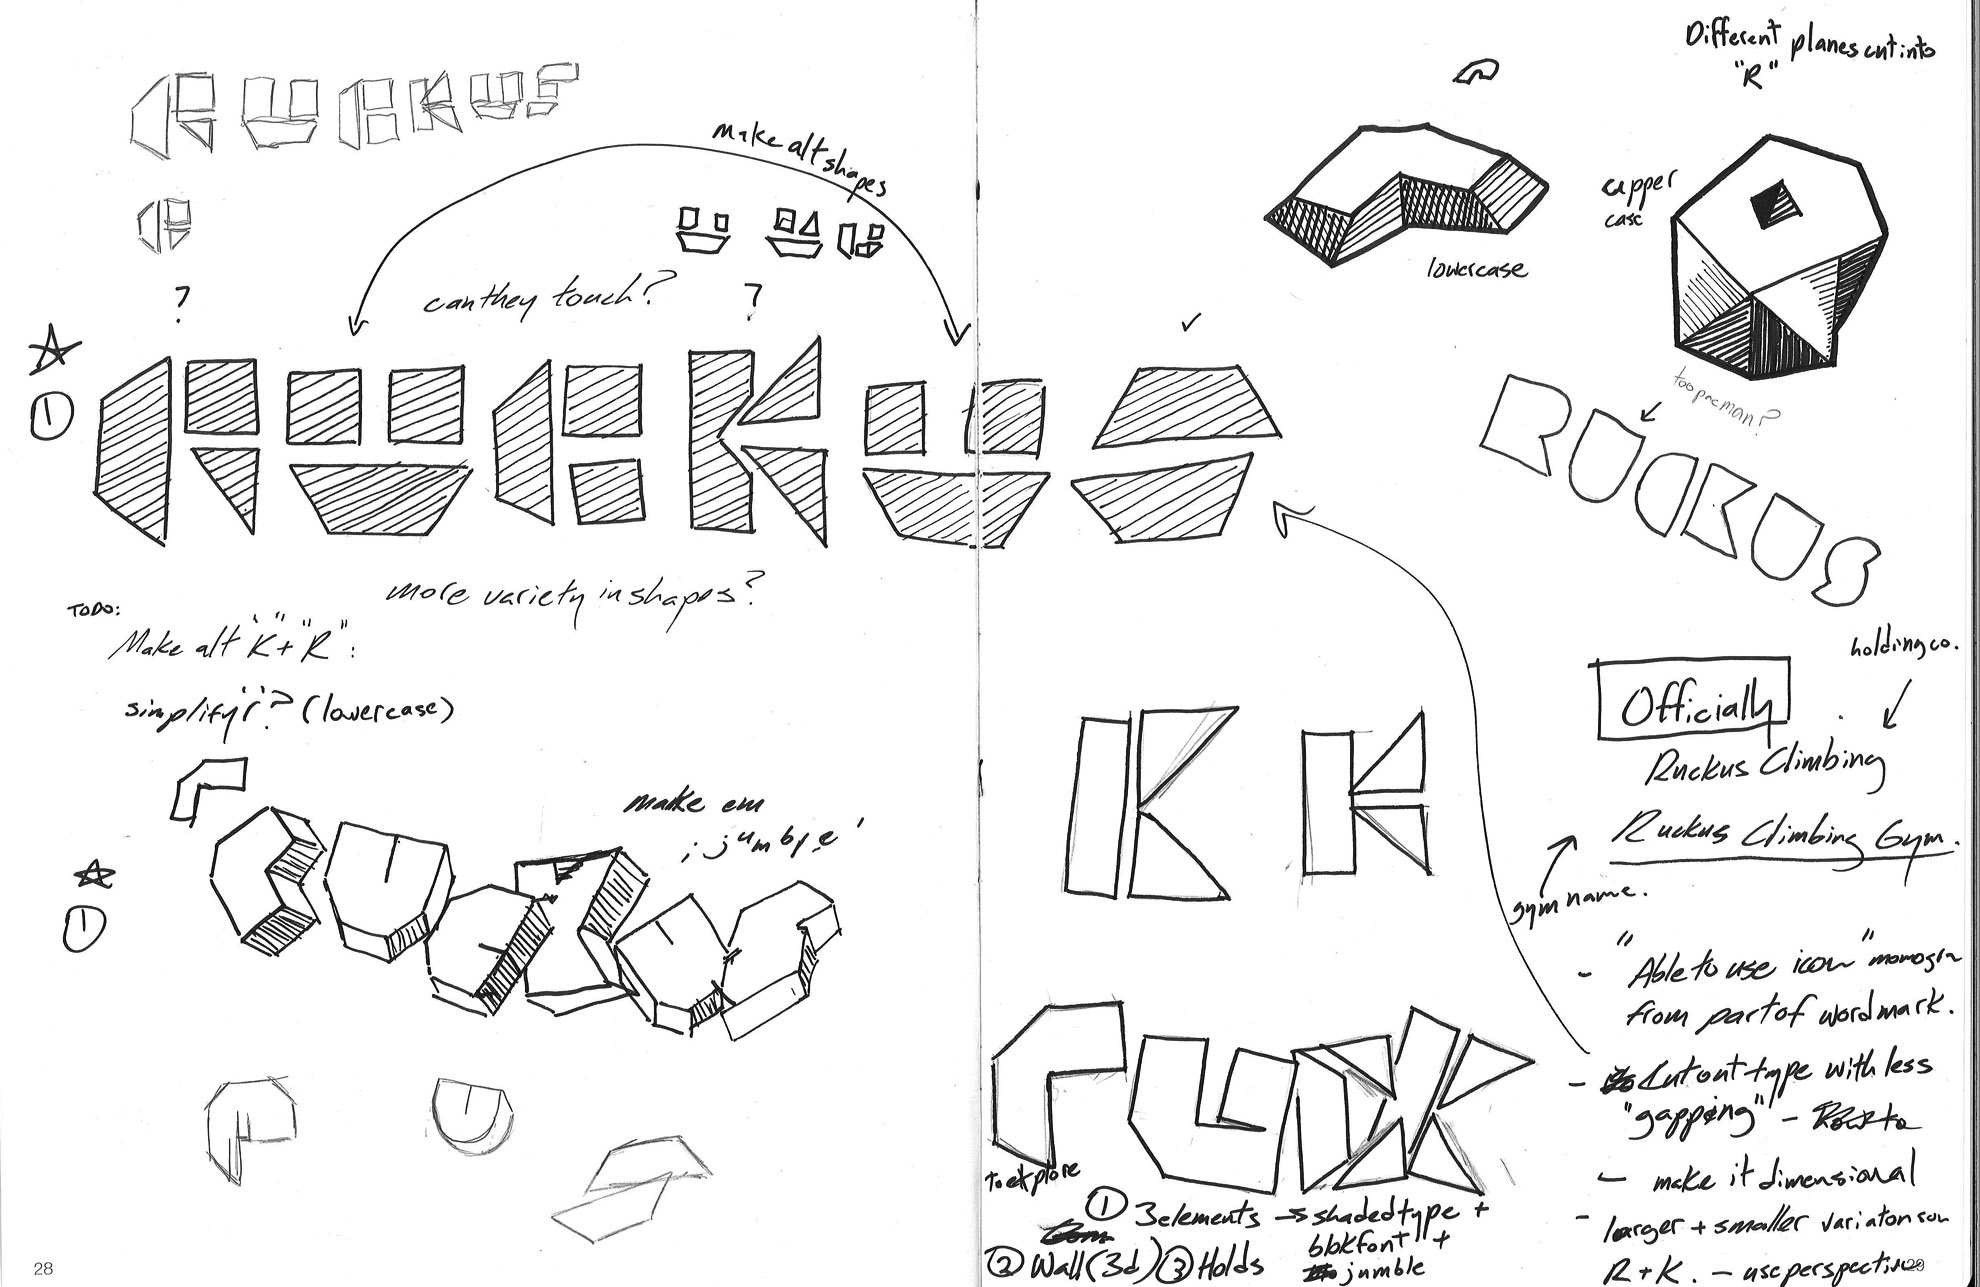 RUCKUS
make alt shapes
?
can they touch?
?
1
RUCKUS
more variety in shapes?
TODO:
Make alt "K" + "R":
simplify "r"? (lowercase)
make em
jumble
1
RUCKUS
28
Different planes cut into
"R"
upper
case
lowercase
too pacman?
RUCKUS
holding co.
Officially
Ruckus Climbing
Ruckus Climbing Gym.
gym name.
K K
- "Able to use icon" monogram
from part of wordmark.
- Cut out type with less
"gapping" -
- make it dimensional
- larger + smaller variations on
R + K. - use perspective
RUCK
to explore
① 3 elements → shaded type +
blok font +
jumble
② Wall (3d) ③ Holds
29